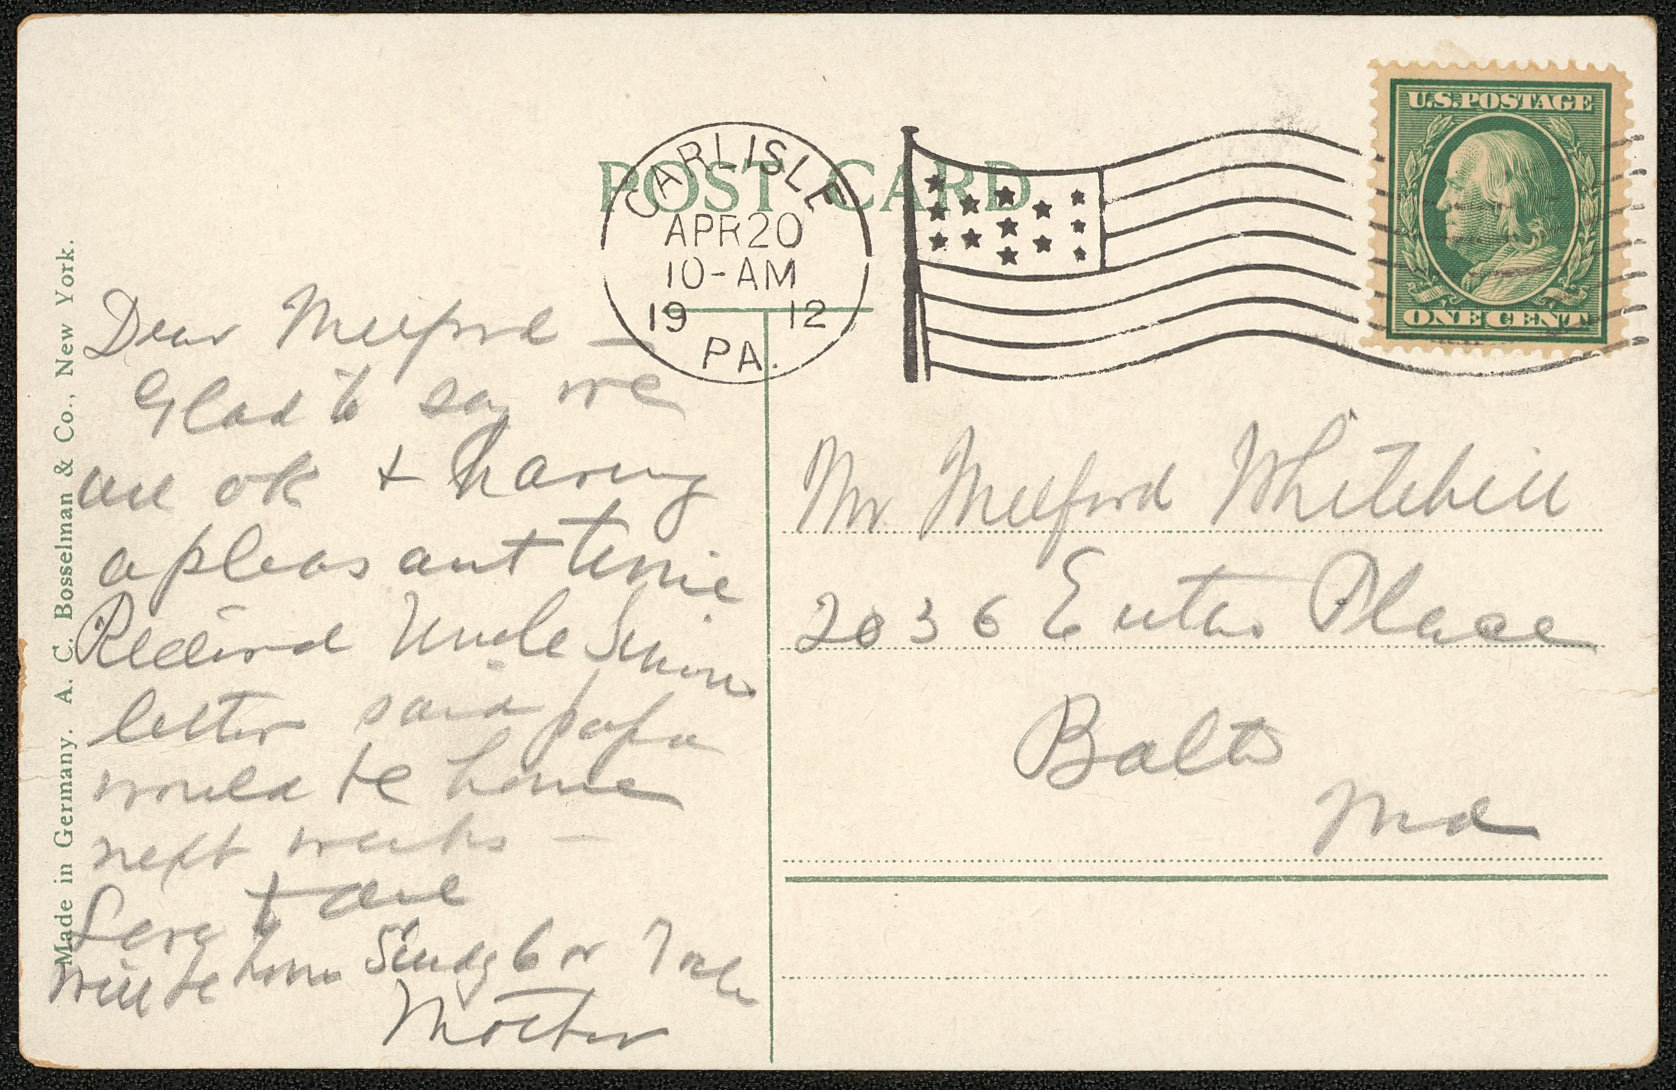 POST CARD
CARLISLE
APR 20
10-AM
19 12
PA.
U.S. POSTAGE
ONE CENT
Made in Germany. A. C. Bosselman & Co., New York.
Dear Milford —
Glad to say we
are ok + having
a pleasant time
Received Uncle Simon
letter said papa
would be home
next week —
Love to all
Will be home Sunday 6 or 7 ock
Mother
Mr Milford Whitehill
2036 Eutaw Place
Balto
Md